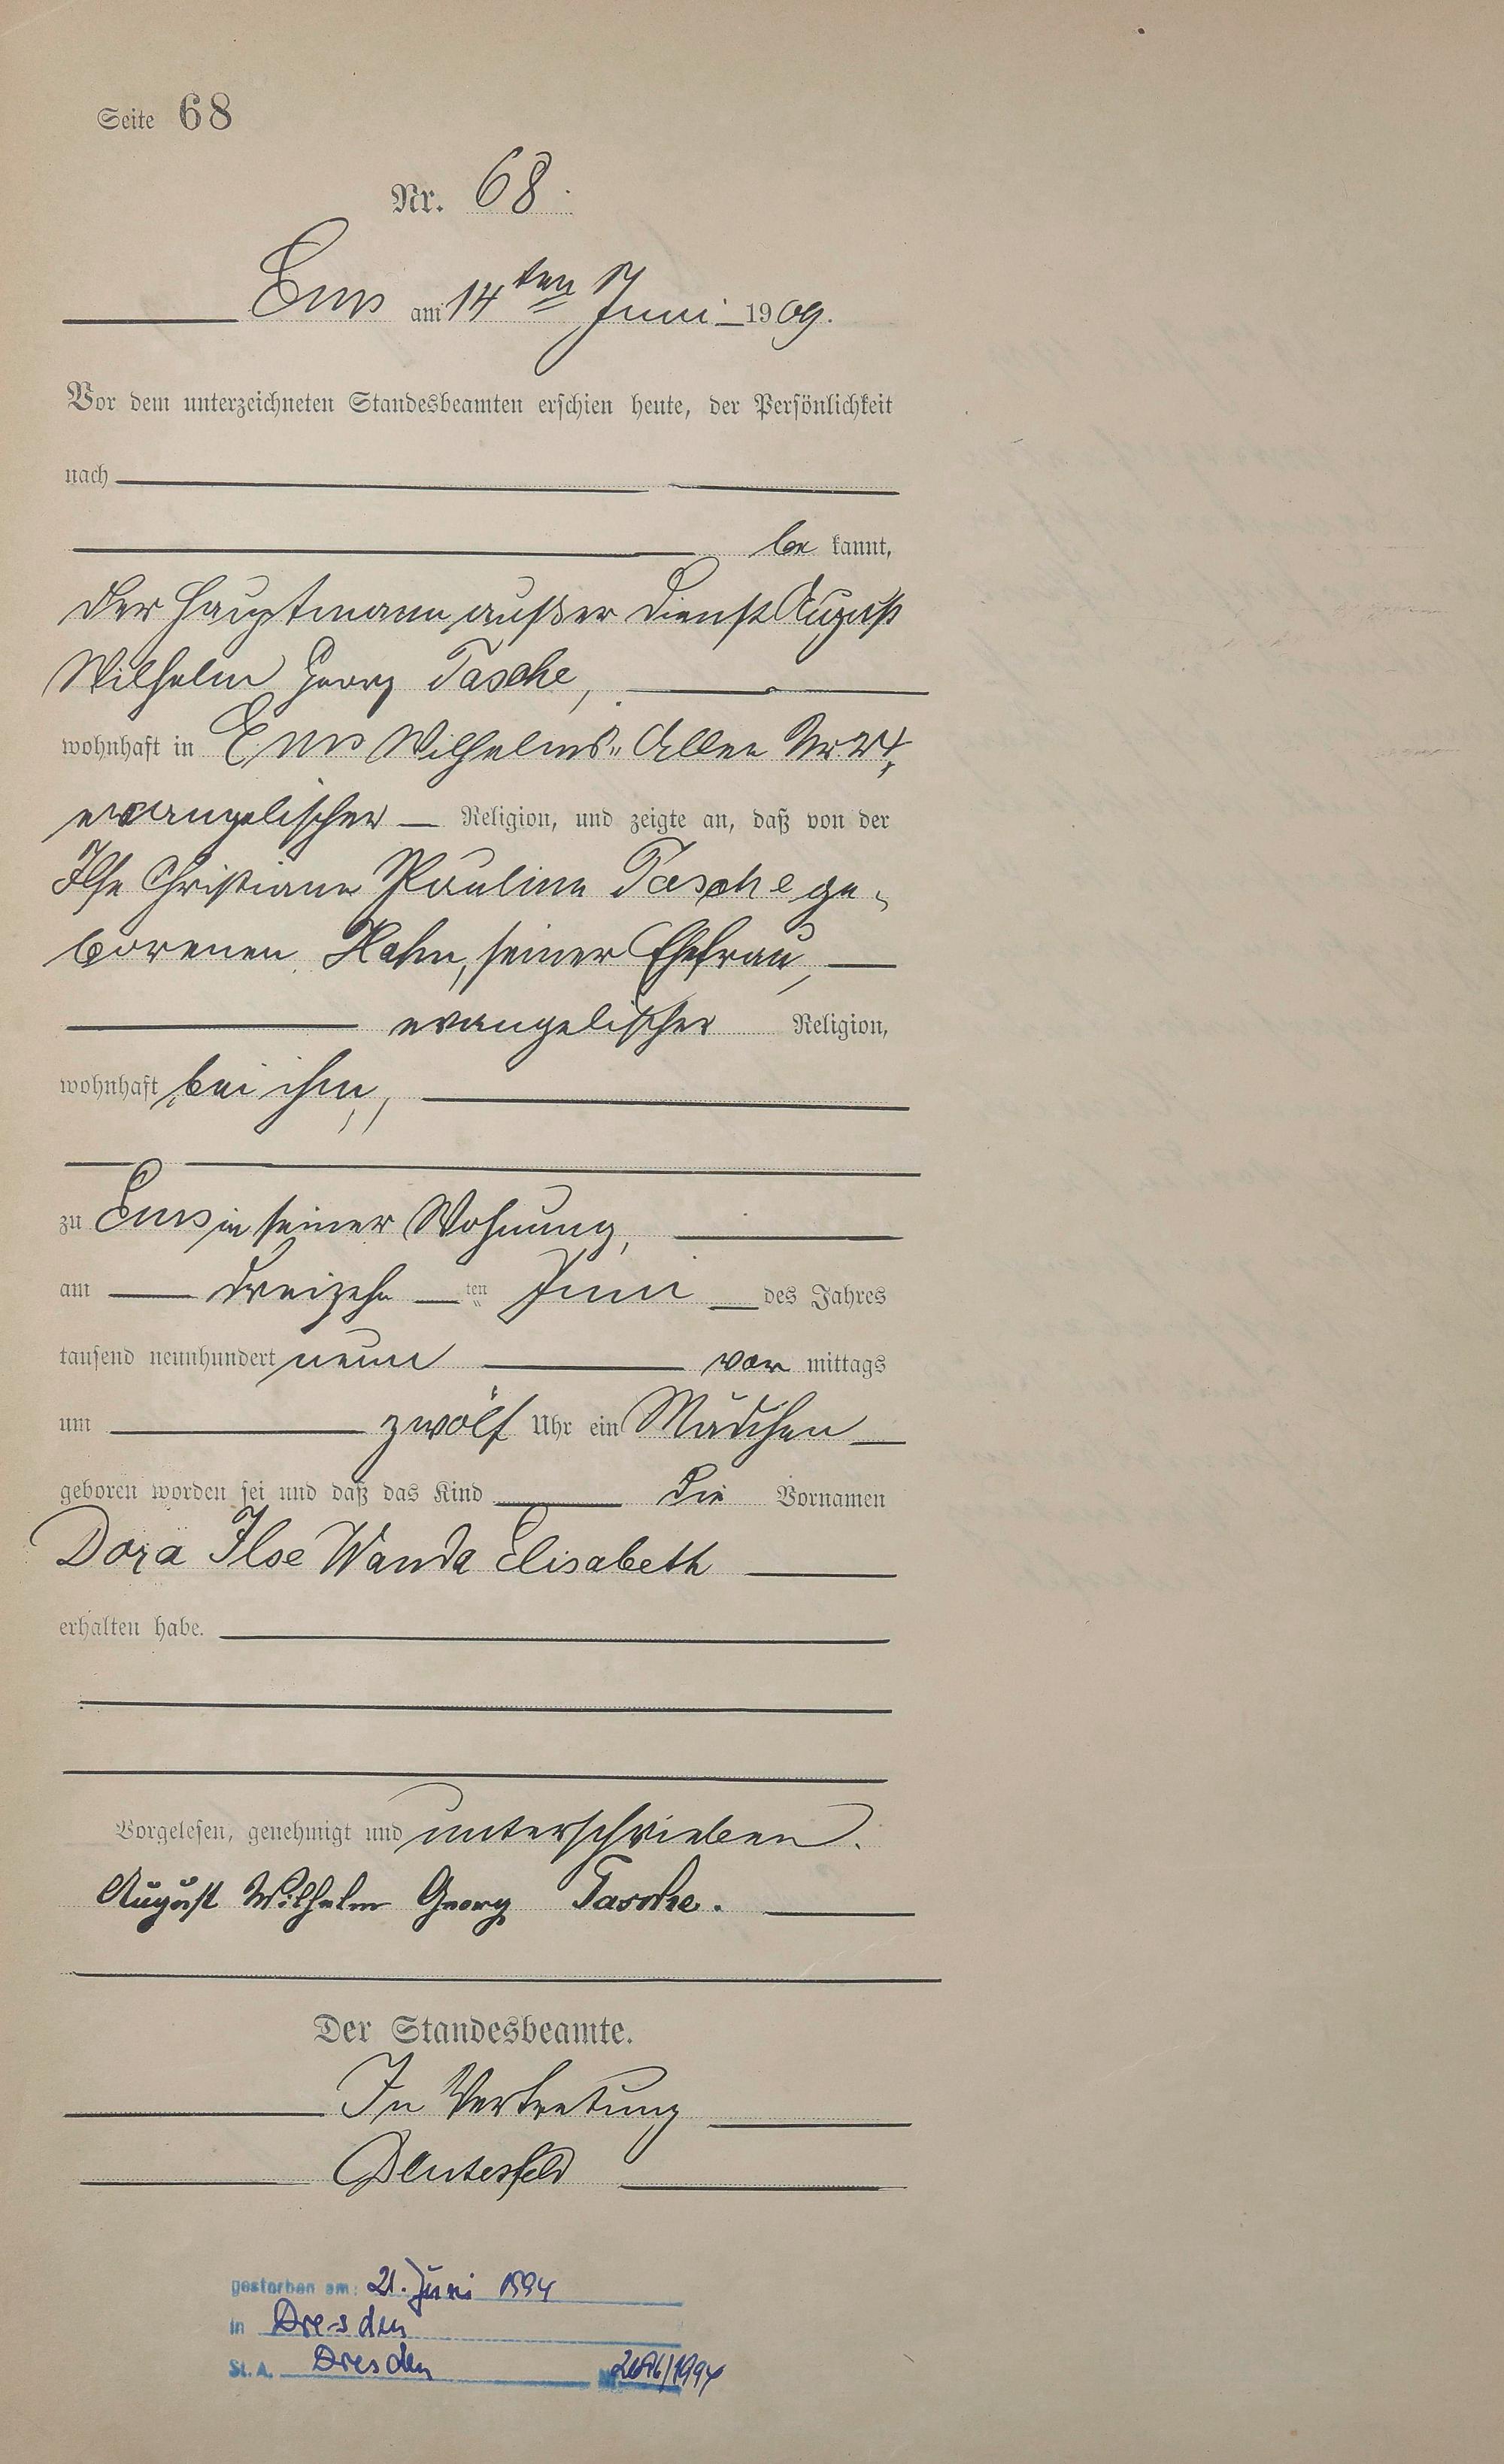 Seite 68
Nr. 68.
Ems am 14ten Juni 1909.
Vor dem unterzeichneten Standesbeamten erschien heute, der Persönlichkeit
nach
be kannt,
der Hauptmann außer Dienst August
Wilhelm Georg Tasche,
wohnhaft in Ems Wilhelms-Allee Nr
evangelischer Religion, und zeigte an, daß von der
Ilse Christiane Pauline Tasche ge-
borenen Hahn, seiner Ehefrau,
evangelischer Religion,
wohnhaft bei ihm,
zu Ems in seiner Wohnung,
am dreizehn ten Juni des Jahres
tausend neunhundert neun vor mittags
um zwölf Uhr ein Mädchen
geboren worden sei und daß das Kind die Vornamen
Dora Ilse Wanda Elisabeth
erhalten habe.
Vorgelesen, genehmigt und unterschrieben.
August Wilhelm Georg Tasche.
Der Standesbeamte.
In Vertretung
gestorben am: 21. Juni 1994
in Dresden
St. A. Dresden